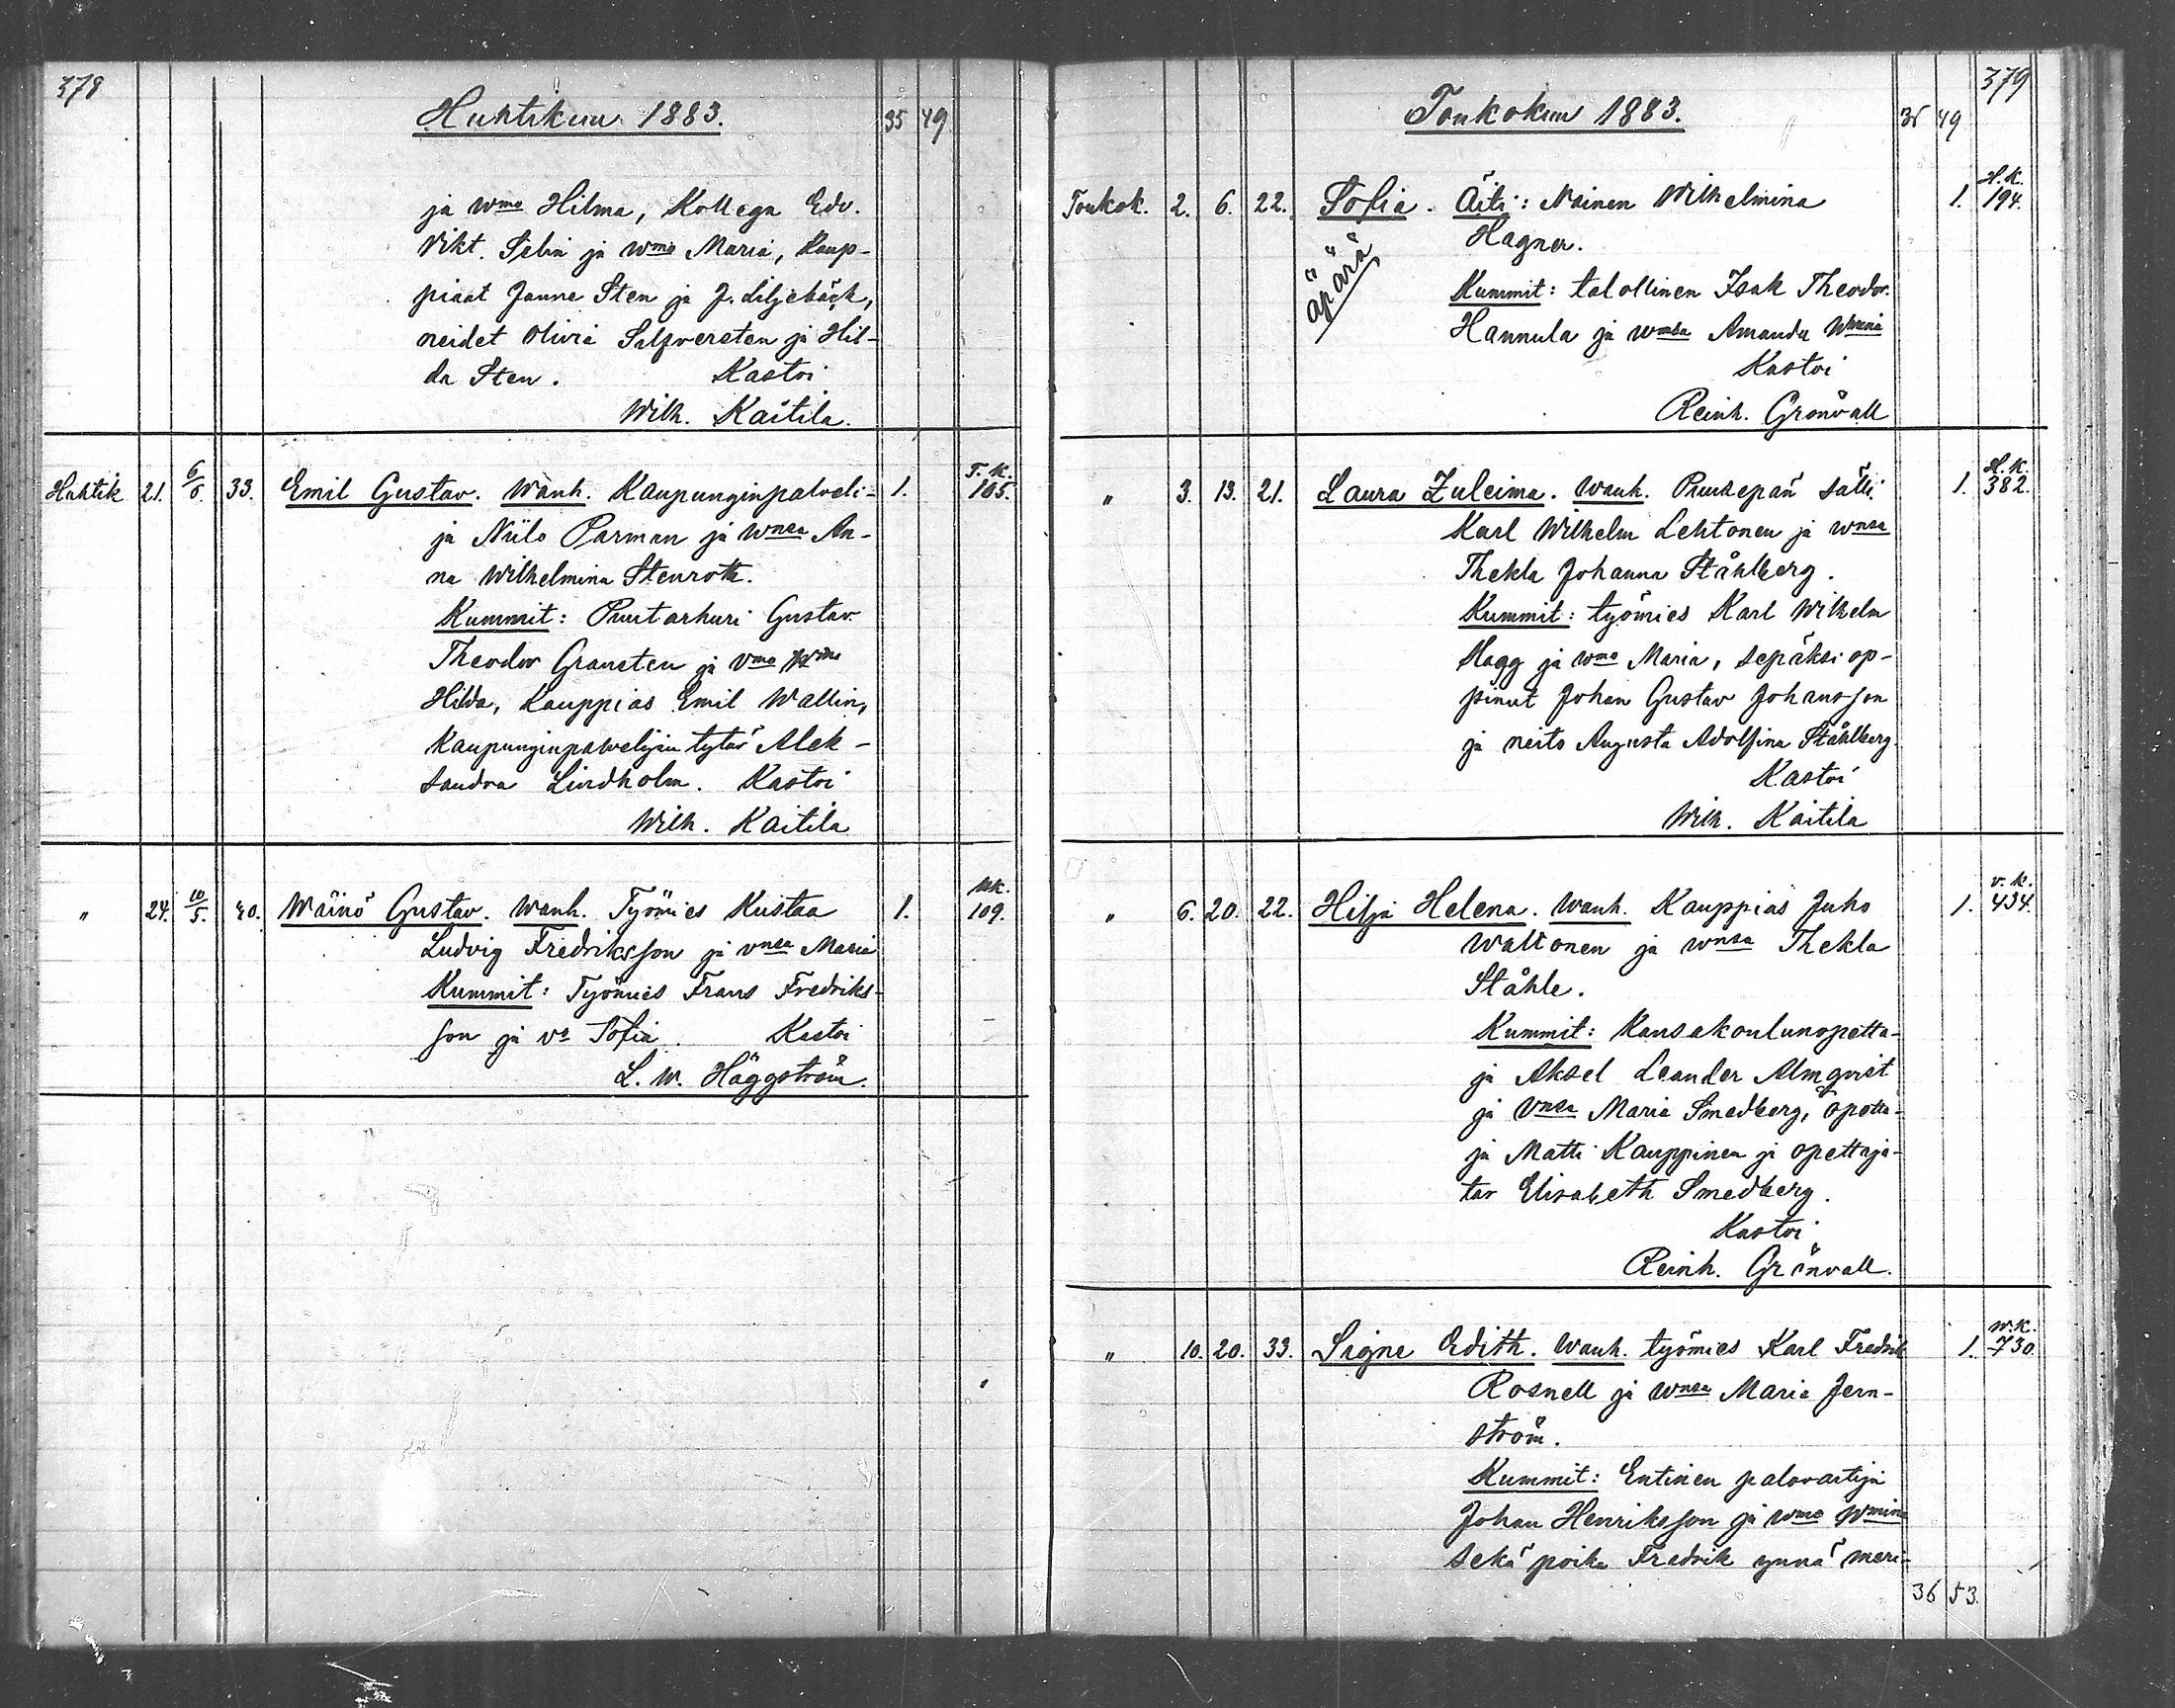 378
Huhtikuu 1883. 35 49
ja wmo Hilma, Kollega Edv.
Vikt. Selin ja wmo Maria, Kaup-
piaat Janne Sten ja J. Liljebäck,
neidet Olivia Silfversten ja Hil-
da Sten. Kastoi
Wilh. Kaitila.
Huhtik 21. 6/6. 33. Emil Gustav. Wanh. Kaupunginpalveli- 1. T.K. 105.
ja Niilo Parman ja wnsa An-
na Wilhelmina Stenroth.
Kummit: Puutarhuri Gustav
Theodor Gransten ja vmo Wma
Hilda, Kauppias Emil Wallin,
Kaupunginpalvelijan tytär Alek-
sandra Lindholm. Kastoi
Wilh. Kaitila
" 24. 10/5. 40. Wäinö Gustav. Wanh. Työmies Kustaa 1. 109.
Ludvig Fredriksson ja vnsa Maria
Kummit: Työmies Frans Fredriks-
son ja vo Sofia. Kastoi
L. W. Häggström.
379
Toukokuu 1883. 35 49
Toukok. 2. 6. 22. Sofia. Äiti: Nainen Wilhelmina 1. H.K. 194.
äpärä
Hagner.
Kummit: talollinen Isak Theodor
Hannula ja wmsa Amanda Wmina
Kastoi
Reinh. Grönvall
" 3. 13. 21. Laura Zuleima. Wanh. Puusepän sälli 1. H.K. 382.
Karl Wilhelm Lehtonen ja wnsa
Thekla Johanna Ståhlberg.
Kummit: työmies Karl Wilhelm
Hagg ja wmo Maria, sepäksi op-
pinut Johan Gustav Johansson
ja neito Augusta Adolfina Ståhlberg.
Kastoi
Wilh. Kaitila
" 6. 20. 22. Hilja Helena. Wanh. Kauppias Juho 1. v.k. 434.
Waltonen ja wnsa Thekla
Ståhle.
Kummit: Kansakoulunopetta-
ja Aksel Leander Almqvist
ja vnsa Maria Smedberg, opetta-
ja Matti Kauppinen ja opettaja-
tar Elisabeth Smedberg.
Kastoi
Reinh. Grönvall.
" 10. 20. 33. Signe Edith. Wanh. työmies Karl Fredrik 1. W.K. 730.
Rosnell ja wnsa Maria Jern-
ström.
Kummit: Entinen palovartija
Johan Henriksson ja wmo Wmina
sekä poika Fredrik ynnä meri-
36 53.